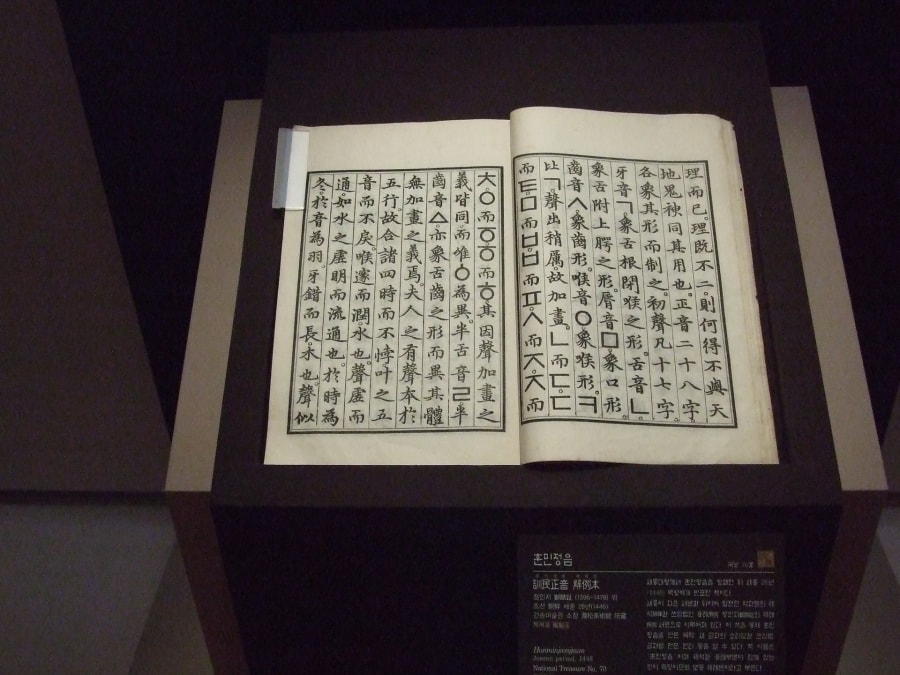 理而已。理既不二。則何得不與天
地鬼神同其用也。正音二十八字。
各象其形而制之。初聲凡十七字。
牙音ㄱ。象舌根閉喉之形。舌音ㄴ。
象舌附上腭之形。脣音ㅁ。象口形。
齒音ㅅ。象齒形。喉音ㅇ。象喉形。ㅋ
比ㄱ。聲出稍厲。故加畫。ㄴ而ㄷ。ㄷ
而ㅌ。ㅁ而ㅂ。ㅂ而ㅍ。ㅅ而ㅈ。ㅈ而
ㅊ。ㅇ而ㆆ。ㆆ而ㅎ。其因聲加畫之
義皆同。而唯ㆁ為異。半舌音ㄹ。半
齒音ㅿ。亦象舌齒之形而異其體。
無加畫之義焉。夫人之有聲本於
五行。故合諸四時而不悖。叶之五
音而不戾。喉邃而潤。水也。聲虛而
通。如水之虛明而流通也。於時為
冬。於音為羽。牙錯而長。木也。聲似
훈민정음
국보 70호
訓民正音 解例本
정인지 (1396-1478) 외
조선 朝鮮 세종 28년(1446)
간송미술관 소장 澗松美術館 所藏
Hunminjeongeum
Joseon period, 1446
National Treasure No. 70